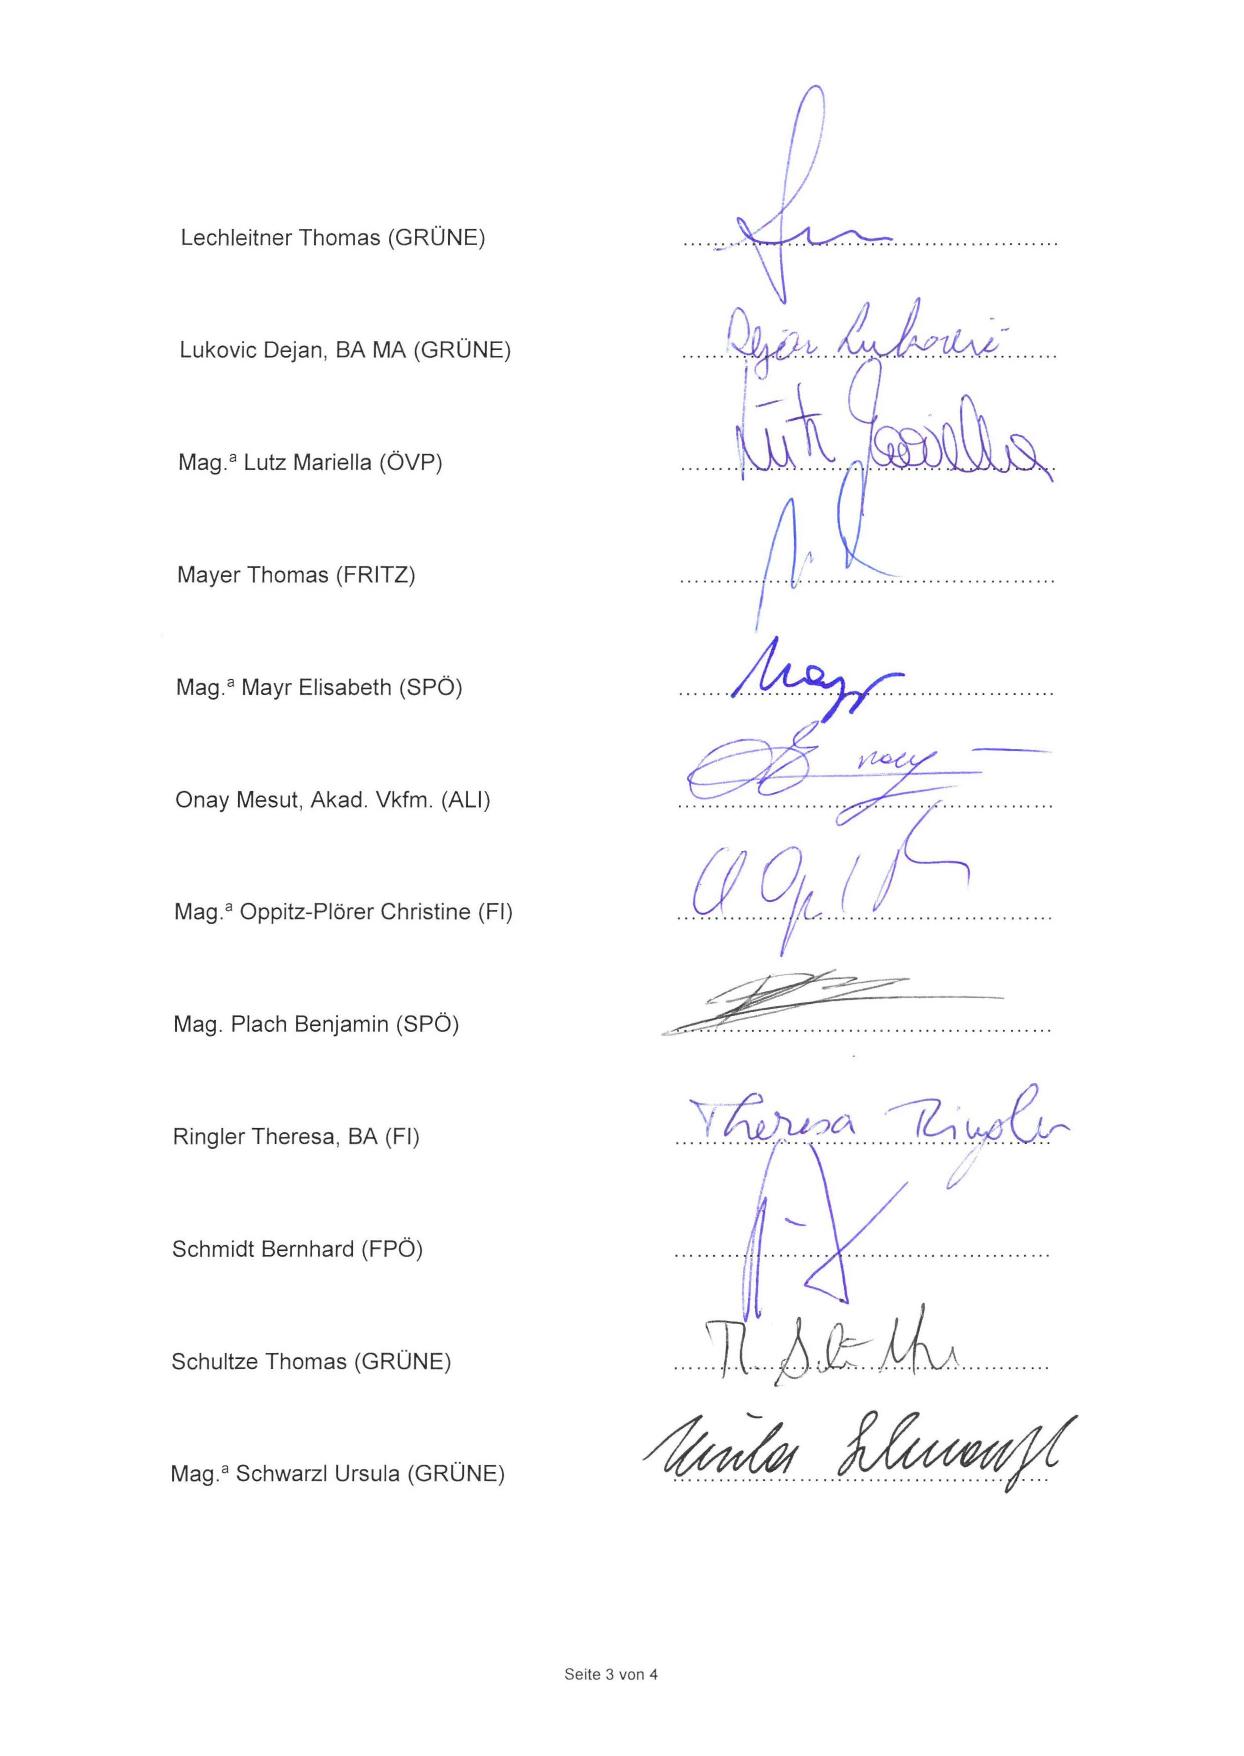 Lechleitner Thomas (GRÜNE)
Lukovic Dejan, BA MA (GRÜNE) Dejan Luković
Mag.ª Lutz Mariella (ÖVP) Lutz Mariella
Mayer Thomas (FRITZ)
Mag.ª Mayr Elisabeth (SPÖ) Mayr
Onay Mesut, Akad. Vkfm. (ALI)
Mag.ª Oppitz-Plörer Christine (FI)
Mag. Plach Benjamin (SPÖ)
Ringler Theresa, BA (FI) Theresa Ringler
Schmidt Bernhard (FPÖ)
Schultze Thomas (GRÜNE)
Mag.ª Schwarzl Ursula (GRÜNE) Ursula Schwarzl
Seite 3 von 4